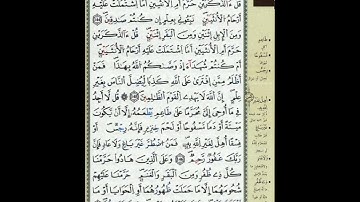 قُلْ ءَآلذَّكَرَيْنِ حَرَّمَ أَمِ ٱلْأُنثَيَيْنِ أَمَّا ٱشْتَمَلَتْ عَلَيْهِ
أَرْحَامُ ٱلْأُنثَيَيْنِ نَبِّـُٔونِى بِعِلْمٍ إِن كُنتُمْ صَٰدِقِينَ ١٤٣
وَمِنَ ٱلْإِبِلِ ٱثْنَيْنِ وَمِنَ ٱلْبَقَرِ ٱثْنَيْنِ قُلْ ءَآلذَّكَرَيْنِ
حَرَّمَ أَمِ ٱلْأُنثَيَيْنِ أَمَّا ٱشْتَمَلَتْ عَلَيْهِ أَرْحَامُ ٱلْأُنثَيَيْنِ
أَمْ كُنتُمْ شُهَدَآءَ إِذْ وَصَّىٰكُمُ ٱللَّهُ بِهَٰذَا فَمَنْ
أَظْلَمُ مِمَّنِ ٱفْتَرَىٰ عَلَى ٱللَّهِ كَذِبًا لِّيُضِلَّ ٱلنَّاسَ بِغَيْرِ
عِلْمٍ إِنَّ ٱللَّهَ لَا يَهْدِى ٱلْقَوْمَ ٱلظَّٰلِمِينَ ١٤٤ قُل لَّآ أَجِدُ
فِى مَآ أُوحِىَ إِلَىَّ مُحَرَّمًا عَلَىٰ طَاعِمٍ يَطْعَمُهُۥٓ إِلَّآ أَن يَكُونَ
مَيْتَةً أَوْ دَمًا مَّسْفُوحًا أَوْ لَحْمَ خِنزِيرٍ فَإِنَّهُۥ رِجْسٌ أَوْ
فِسْقًا أُهِلَّ لِغَيْرِ ٱللَّهِ بِهِۦ فَمَنِ ٱضْطُرَّ غَيْرَ بَاغٍ وَلَا عَادٍ فَإِنَّ
رَبَّكَ غَفُورٌ رَّحِيمٌ ١٤٥ وَعَلَى ٱلَّذِينَ هَادُوا۟ حَرَّمْنَا
كُلَّ ذِى ظُفُرٍ وَمِنَ ٱلْبَقَرِ وَٱلْغَنَمِ حَرَّمْنَا عَلَيْهِمْ
شُحُومَهُمَآ إِلَّا مَا حَمَلَتْ ظُهُورُهُمَآ أَوِ ٱلْحَوَايَآ أَوْ مَا